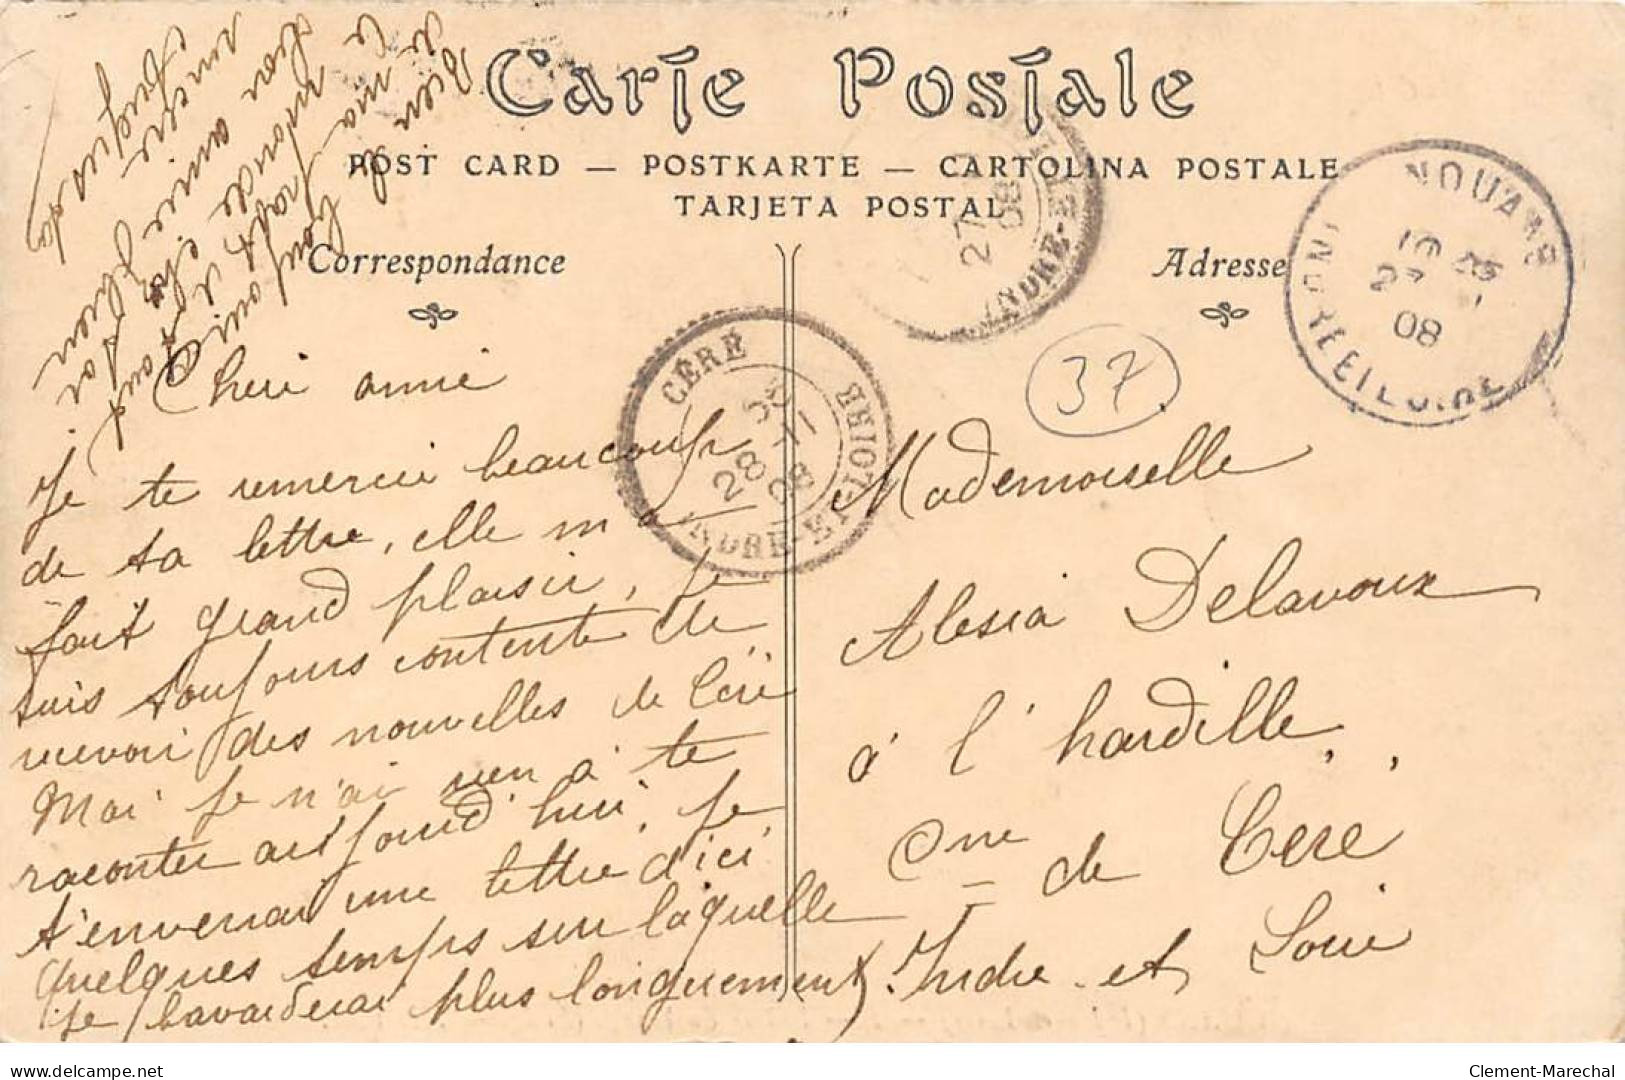 Carte Postale
POST CARD — POSTKARTE — CARTOLINA POSTALE
TARJETA POSTAL
Correspondance
Adresse
Bien le
de ma
tout le monde
chez toi
ton amie
sincère
37
CÉRÉ
28 - 11
08
INDRE-ET-LOIRE
27
08
INDRE-ET
NOUANS
27
08
INDRE ET LOIRE
Cheri amie
Je te remercie beaucoup
de ta lettre, elle m'a
fait grand plaisir, je
suis toujours contente de
recevoir des nouvelles de Céré
Moi je n'ai rien à te
raconter aujourd'hui, je
t'enverrai une lettre d'ici
quelques temps sur laquelle
je bavarderai plus longuement.
Mademoiselle
Alesia Delavoux
à l'hardille,
Cne de Céré
Indre et Loire
Clement-Marechal